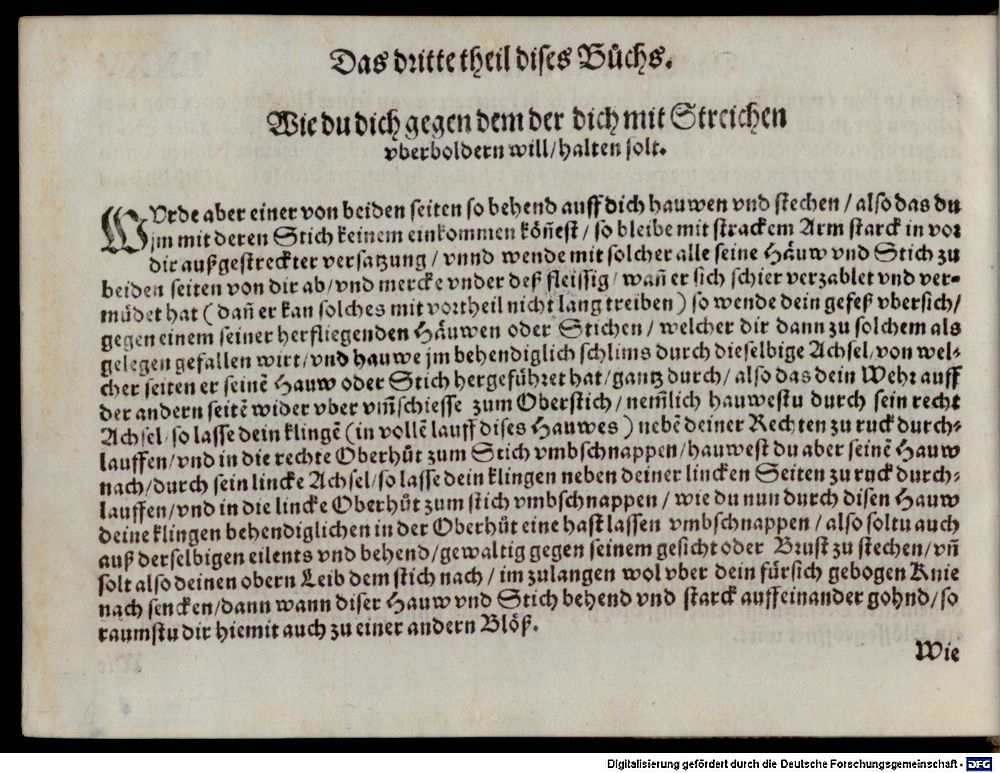 Das dritte theil dises Bůchs.
Wie du dich gegen dem der dich mit Streichen
vberboldern will/halten solt.
WUrde aber einer von beiden seiten so behend auff dich hauwen vnd stechen / also das du
jm mit deren Stich keinem einkommen köñest / so bleibe mit strackem Arm starck in vor
dir außgestreckter versatzung / vnnd wende mit solcher alle seine Häuw vnd Stich zu
beiden seiten von dir ab/vnd mercke vnder deß fleissig / wañ er sich schier verzablet vnd ver-
müdet hat ( dañ er kan solches mit vortheil nicht lang treiben ) so wende dein gefeß vbersich/
gegen einem seiner herfliegenden Häuwen oder Stichen / welcher dir dann zu solchem als
gelegen gefallen wirt/vnd hauwe jm behendiglich schlims durch dieselbige Achsel/von wel-
cher seiten er seinē Hauw oder Stich hergeführet hat/gantz durch/ also das dein Wehr auff
der andern seitē wider vber vm̃schiesse zum Oberstich / nem̃lich hauwestu durch sein recht
Achsel/so lasse dein klingē (in vollē lauff dises Hauwes ) nebē deiner Rechten zu ruck durch-
lauffen/vnd in die rechte Oberhůt zum Stich vmbschnappen/hauwest du aber seinē Hauw
nach/durch sein lincke Achsel/so lasse dein klingen neben deiner lincken Seiten zu ruck durch-
lauffen/vnd in die lincke Oberhůt zum stich vmbschnappen / wie du nun durch disen Hauw
deine klingen behendiglichen in der Oberhůt eine hast lassen vmbschnappen / also soltu auch
auß derselbigen eilents vnd behend/gewaltig gegen seinem gesicht oder Brust zu stechen/vñ
solt also deinen obern Leib dem stich nach / im zulangen wol vber dein fürsich gebogen Knie
nach sencken/dann wann diser Hauw vnd Stich behend vnd starck auffeinander gohnd/so
raumstu dir hiemit auch zu einer andern Blöß.
Wie
Digitalisierung gefördert durch die Deutsche Forschungsgemeinschaft - DFG